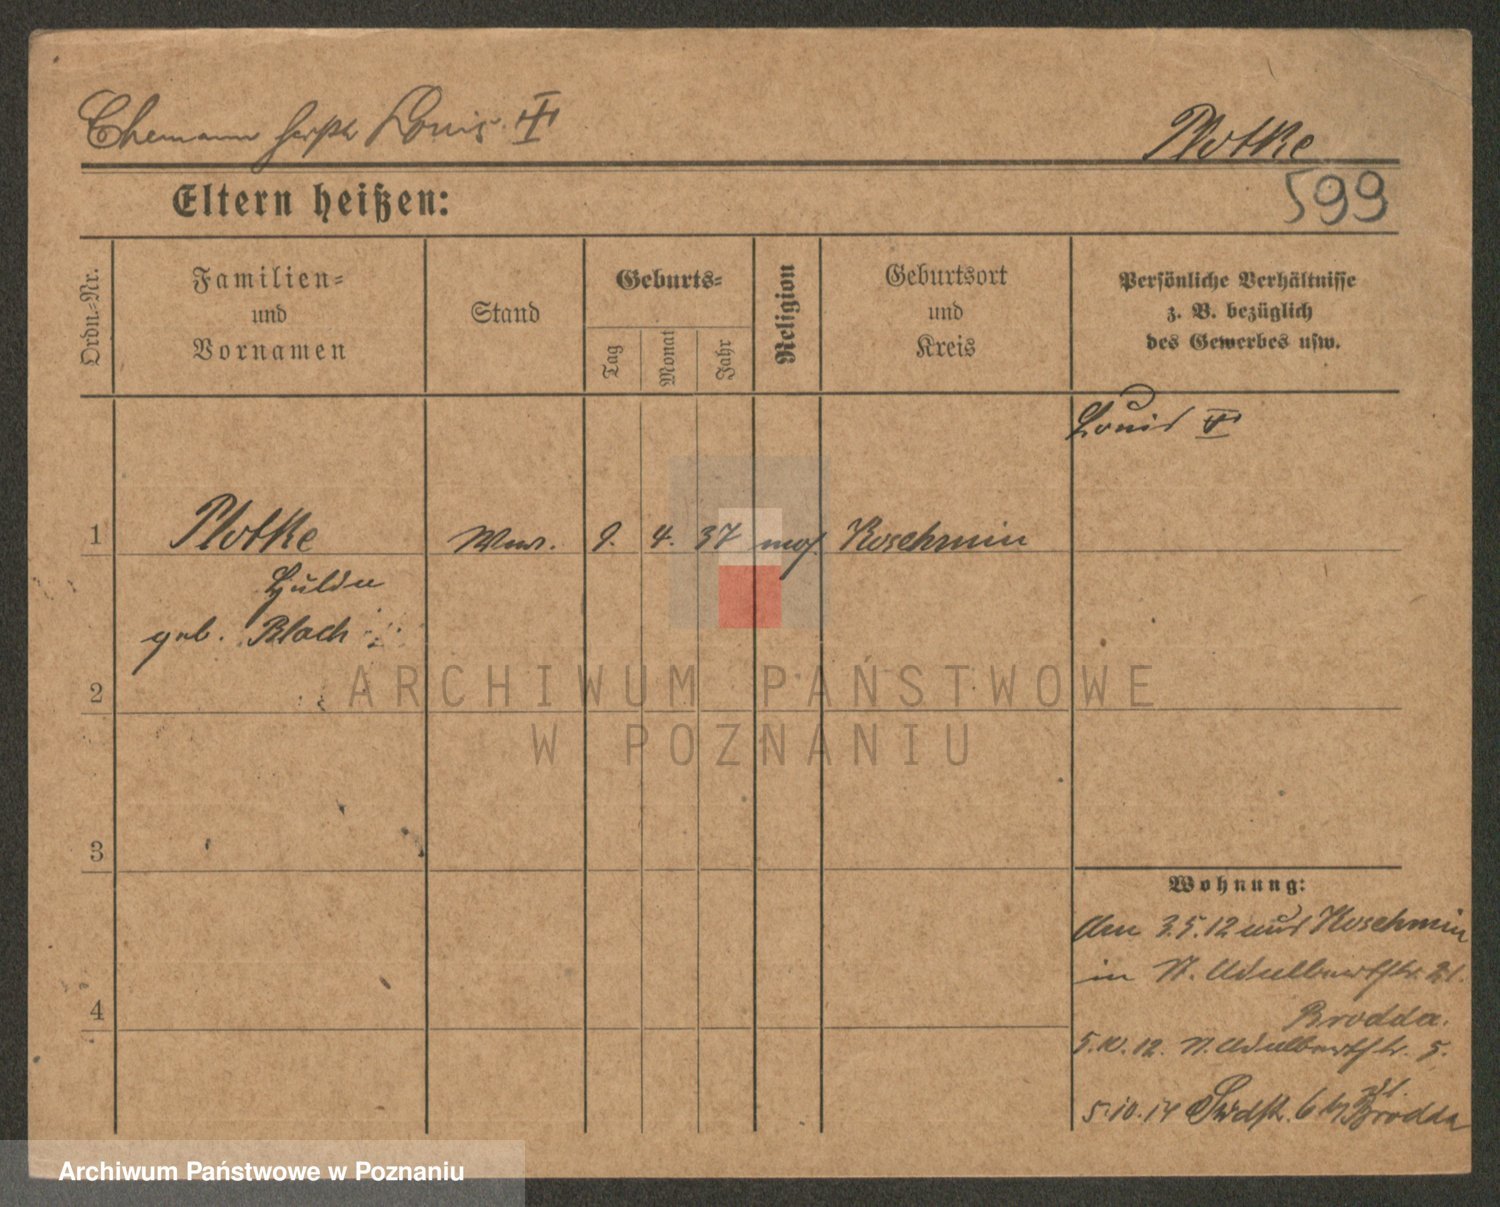 Ehemann Louis †
Plotke
599
Eltern heißen:
Ordn.-Nr.
Familien-
und
Vornamen
Stand
Geburts-
Tag
Monat
Jahr
Religion
Geburtsort
und
Kreis
Persönliche Verhältnisse
z. B. bezüglich
des Gewerbes usw.
Louis †
1 Plotke Wwe. 9. 4. 37 mos. Koschmin
Hulda
geb. Blach
2
ARCHIWUM PAŃSTWOWE
W POZNANIU
3
Wohnung:
Am 3.5.12 aus Koschmin
in N. Adalbertstr. 21.
Brodda.
4
5.10.12. N. Adalbertstr. 5.
5.10.14 6 Brodda
Archiwum Państwowe w Poznaniu